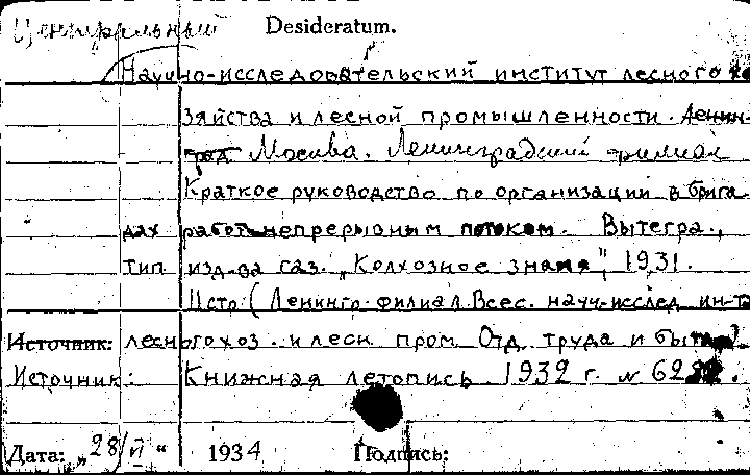 Центральный Desideratum.
Научно-исследовательский институт лесного хо
зяйства и лесной промышленности. Ленин-
град Москва. Ленинградский филиал
Краткое руководство по организации в брига
дах работ непрерывным потоком. Вытегра.,
тип изд-ва газ. „Колхозное знамя", 1931.
11 стр. (Ленингр. филиал Всес. науч.-исслед. ин-та
Источник: лесного хоз. и лесн. пром. Отд. труда и быта)
Источник: Книжная летопись. 1932 г. №
Дата: „28/II" 1934 Подпись: